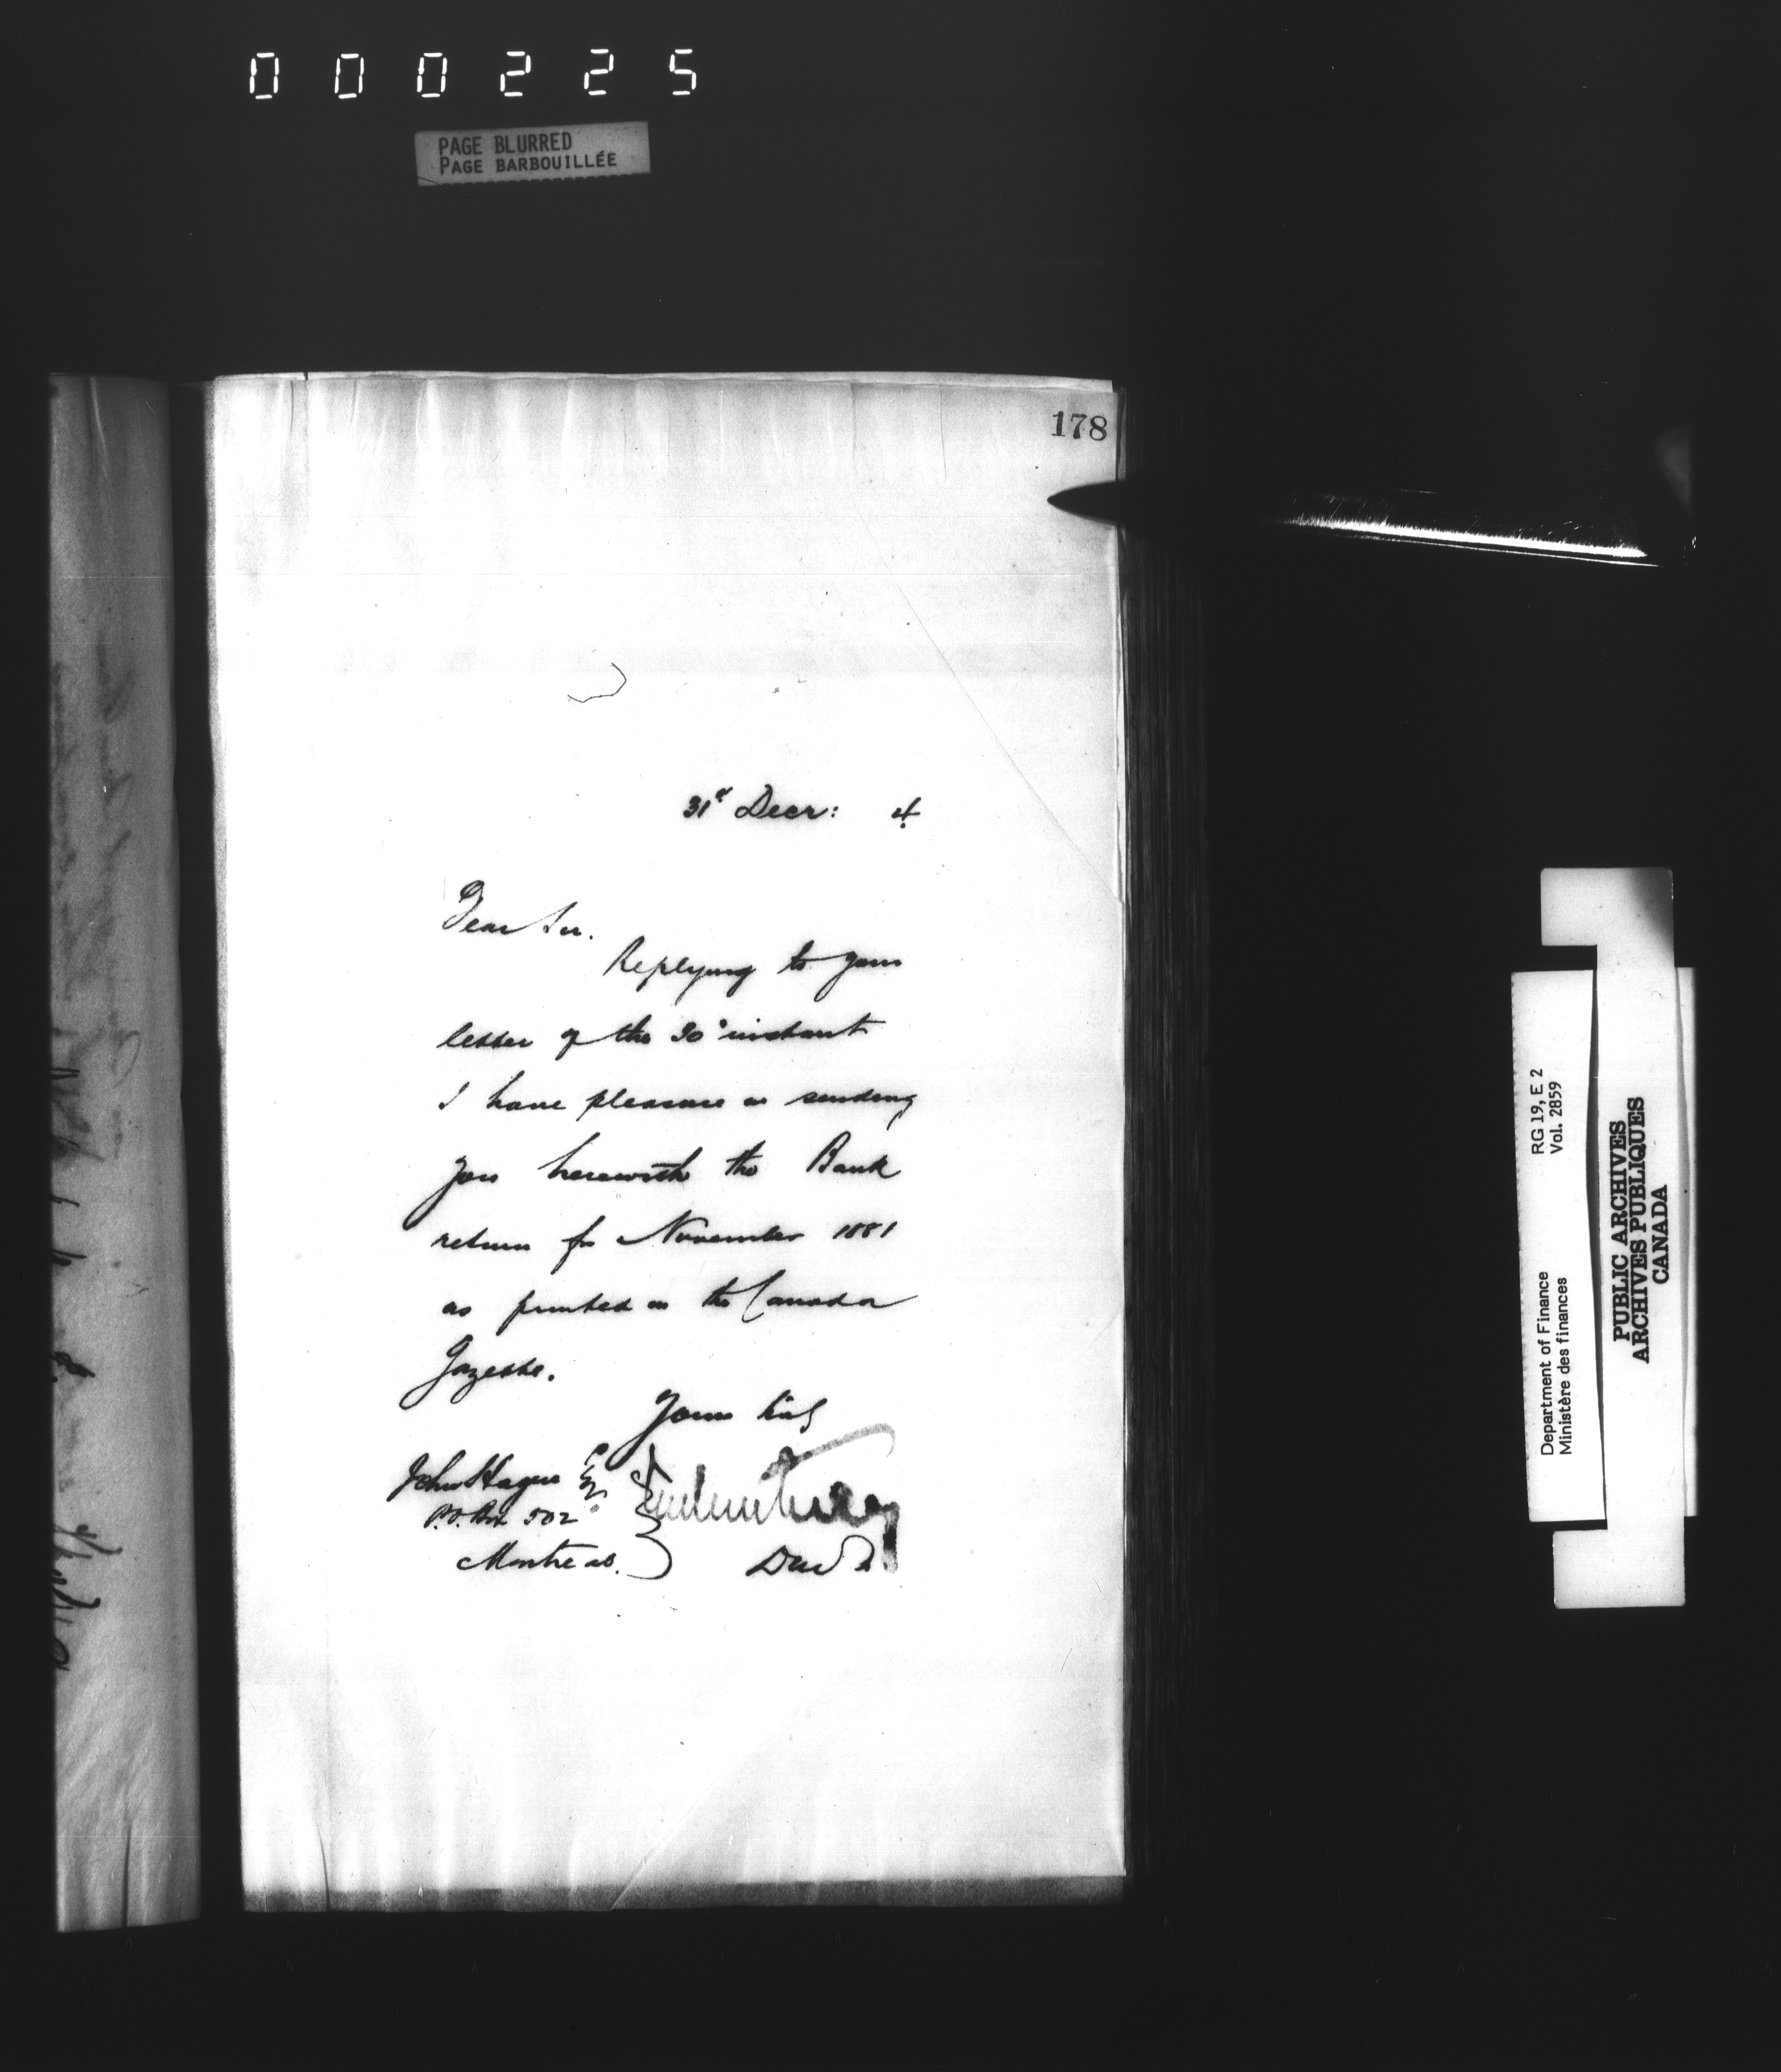 000225
PAGE BLURRED
PAGE BARBOUILLÉE
178
31st Decr: 4.
Dear Sir.
Replying to your
letter of the 30th instant
I have pleasure in sending
you herewith the Bank
return for November 1881
as printed in the Canada
Gazette.
Yours truly
John Hague Esq
P.O. Box 502
Montreal.
RG 19, E 2
Vol. 2859
Department of Finance
Ministère des finances
PUBLIC ARCHIVES
ARCHIVES PUBLIQUES
CANADA